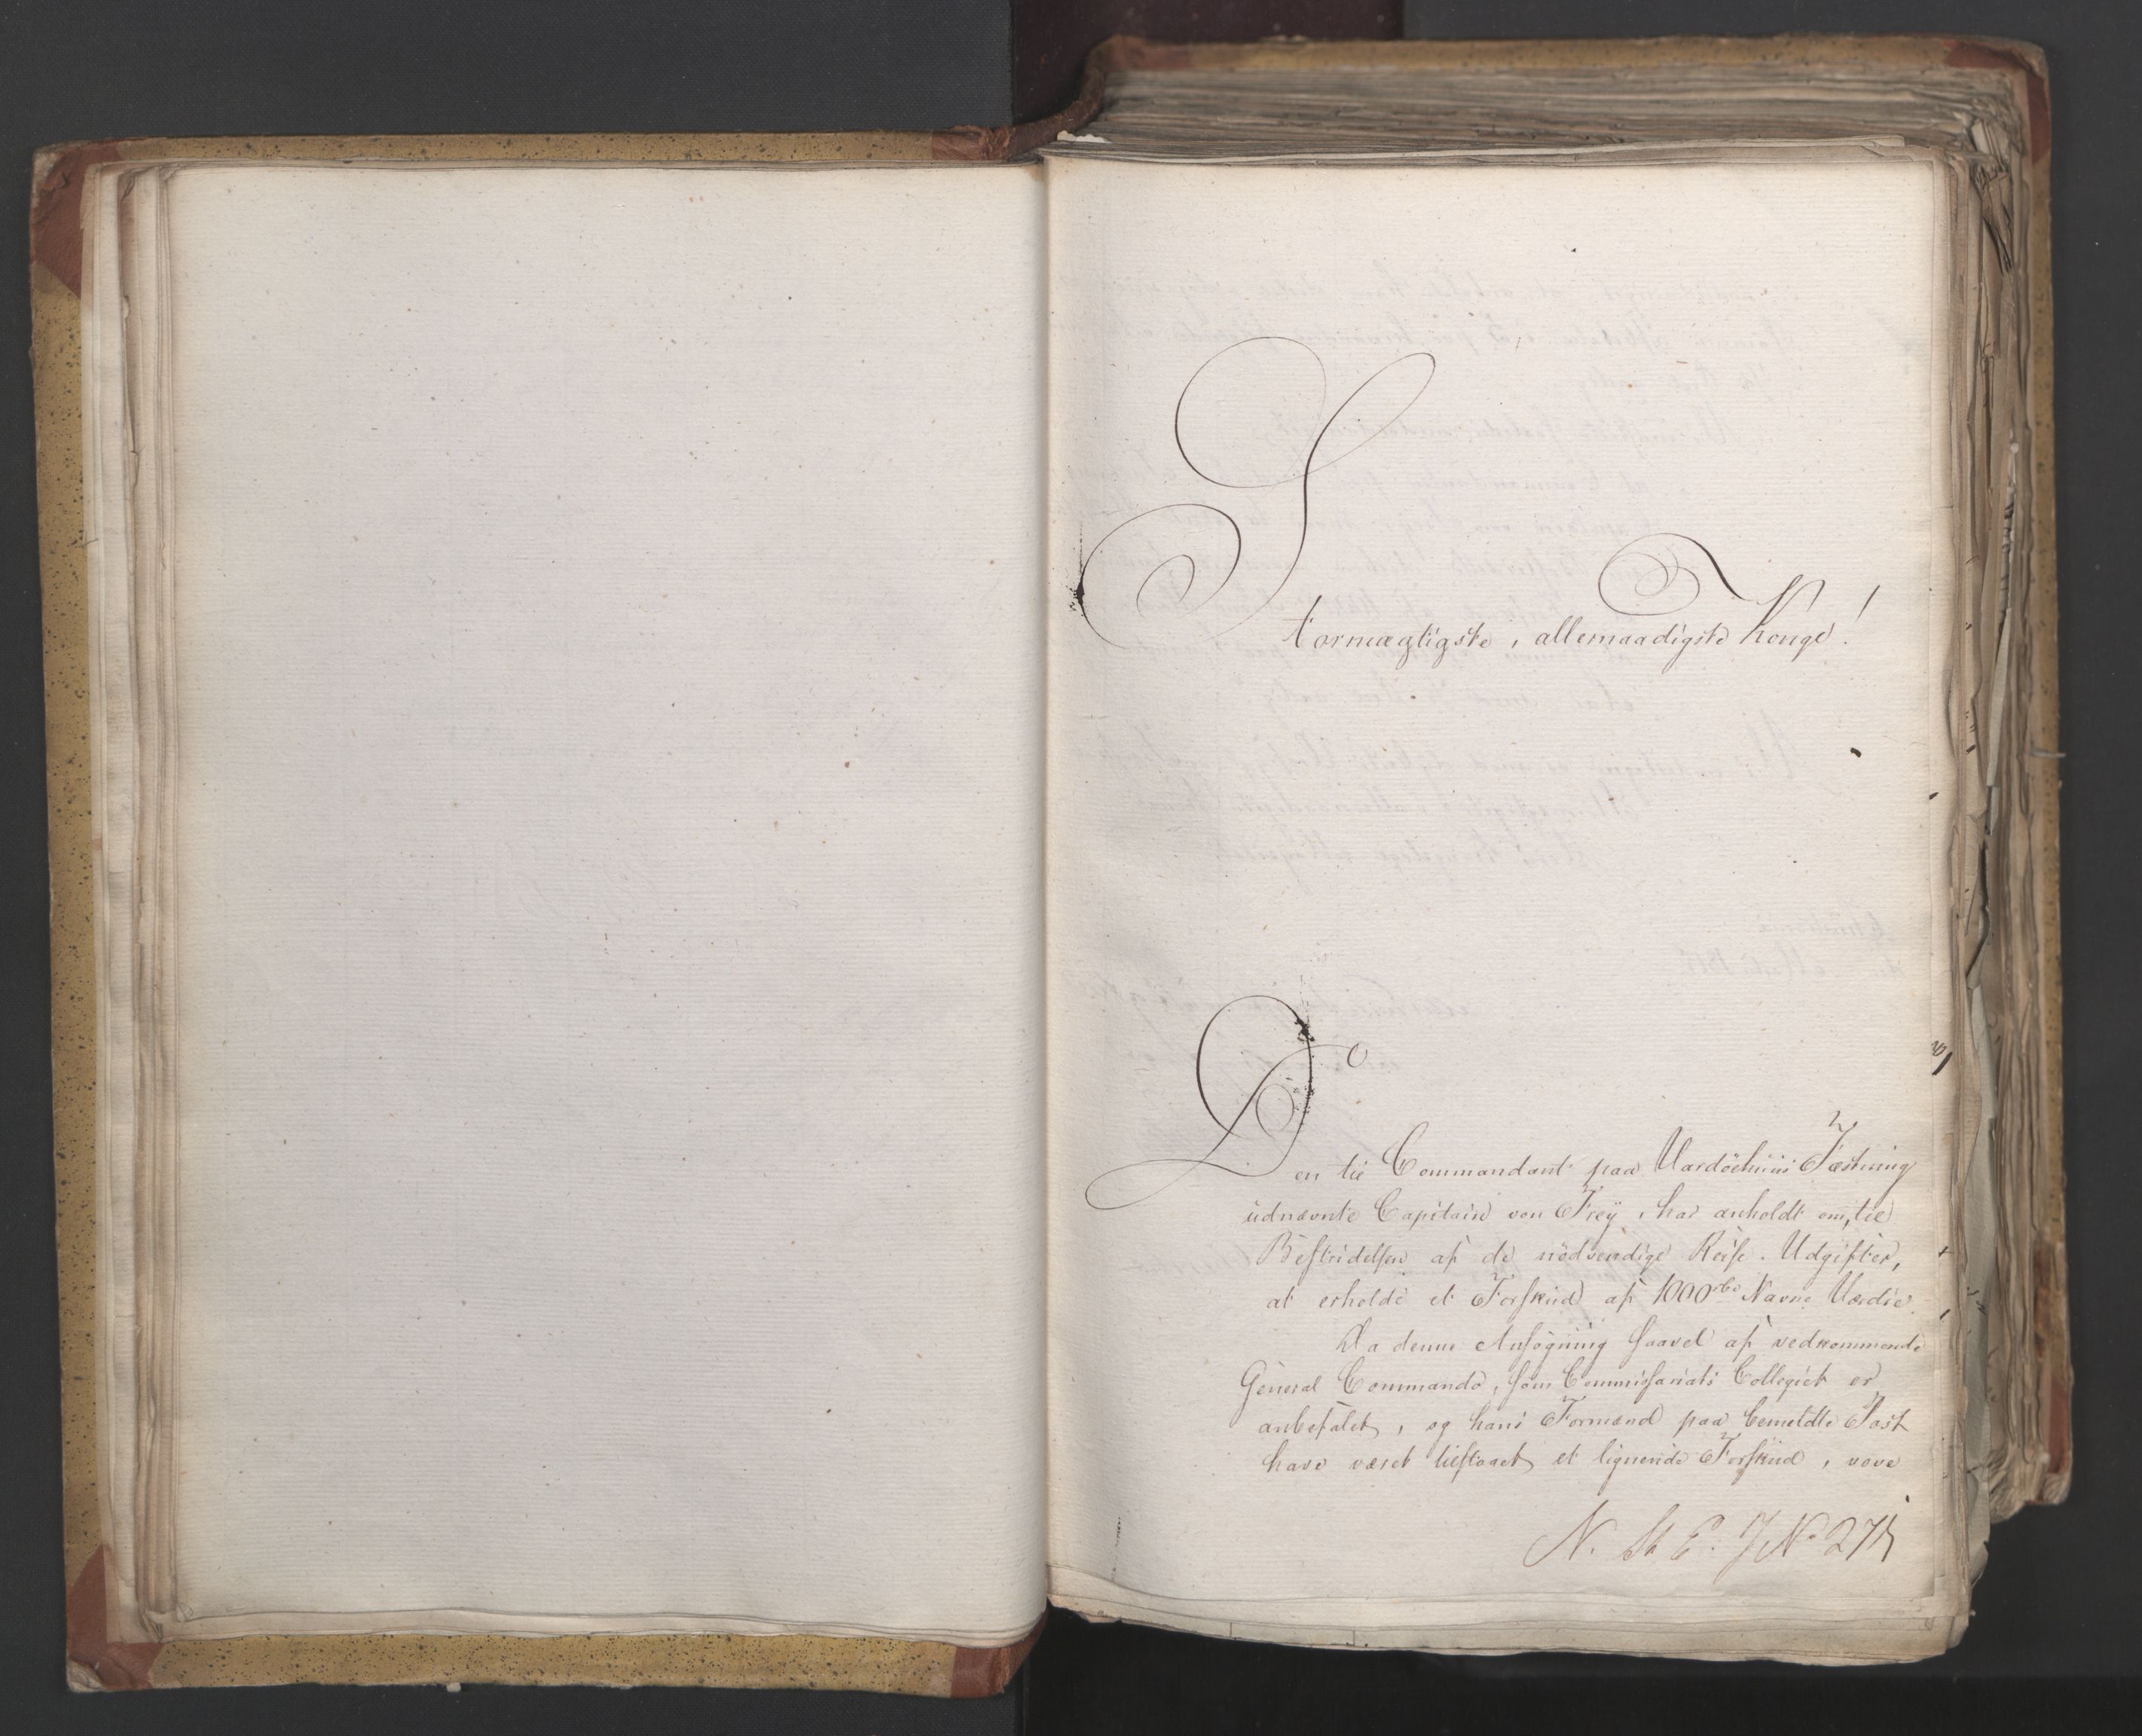 Stormægtigste, allernaadigste Konge!
Den til Commandant paa Vardöehuus Fæstning
udnævnte Capitain von Frey, har anholdt om, til
Bestridelsen af de nödvendige Reise-Udgifter,
at erholde et Forskud af 1000 rbd Navne Værdie.
Da denne Ansögning saavel af vedkommende
General Commando, som Commissariats Collegiet er
anbefalet, og hans Formænd paa bemeldte Post
have været tilstaaet et lignende Forskud, vove
N. St E. J No 275